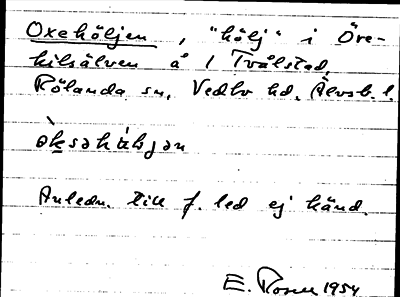 Oxehöljen, "hölj" i Öre-
kilsälven å 1 Tvålstad,
Rölanda sn, Vedbo hd. Älvsb. l.
òksəhàljən
Anledn. till f. led ej känd.
E. Rosén 1954